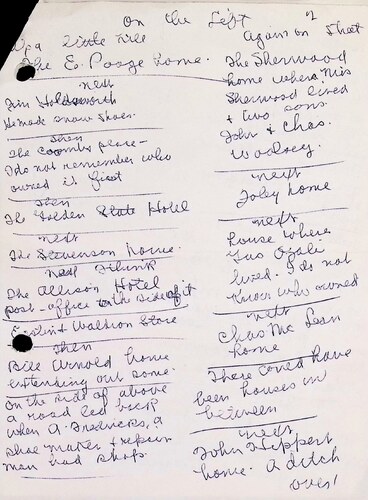 On the Left
Up a Little Hill
The E. Pooge home.
next
Jim Holdsworth
He made snow shoes.
Then
The Coombs place-
I do not remember who
owned it first
Then
The Golden State Hotel
next
The Stevenson house.
Next I think
The Allison Hotel
post-office in the side of it
& Waldron Store
Then
Bill Arnold home
extending out some.
On the side of above
a road led back
when A. Fredricks, a
shoe maker & repair
man had shop.
Again on Sheet
#2
The Sherwood
home where Mrs
Sherwood lived
& two sons.
John & Chas.
Woolsey.
next
Foley home
next
house where
Gus
lived. I do not
know who owned
next
Chas Mc Lean
home
There could have
been houses in
between
next
John Hippert
home. A ditch
over